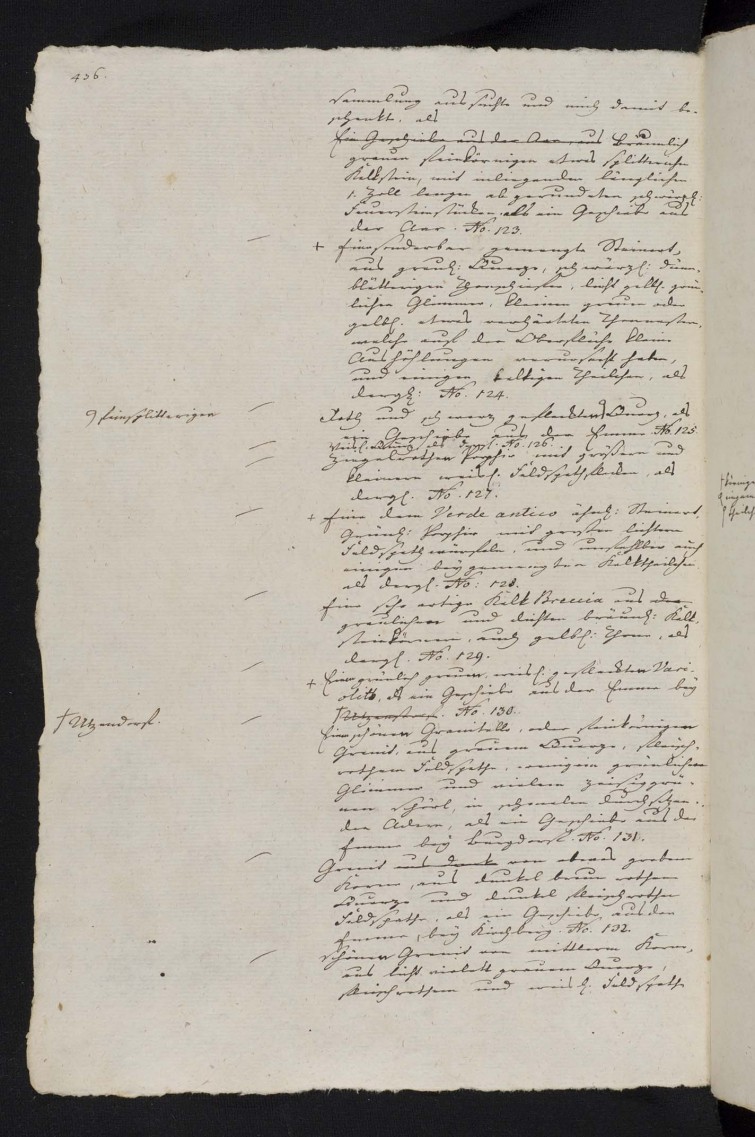 436.
sammlung aussuchte und mich damit be-
schenkt, als
Ein Geschiebe aus der Aar, aus Bräunlich
grauen feinkörnigen etwas splitterichen
Kalkstein, mit inliegenden länglichen
1. Zoll langen abgerundeten schwärzl:
Feuersteinstücken als ein Geschiebe aus
der Aar. No. 123.
+ Eine sonderbar gemengte Steinart,
aus graul: Quarze, schwärzl: dünn-
blätterigen Thonschiefer, licht gelbl. grün-
lichen Glimmer, kleinen grauen oder
gelbl. etwas verhärteten Thonnestern,
welche auf der Oberfläche kleine
Aushöhlungen verursacht haben,
und einigen kalkigen Theilchen, als
dergl: No. 124.
feinsplitterigen
Roth und schwarz gefleckter Quarz, als
ein Geschiebe aus der Emme No. 125
dergl. No. 126.
Ziegelrother Porphir mit größern und
kleinern weisl. Feldspathflecken, als
dergl. No. 127.
+ Eine dem Verde antico ähnl: Steinart,
Grünl: Porphir mit großen lichtern
Feldspathwürfeln, und unfühlbar auch
einigen beygemengten Kalktheilchen
als dergl. No: 128.
Eine sehr artige Kalk Breccia aus den
graulichen und dichten bräunl: Kalk-
steinkörnern, auch gelbl: Thon, als
dergl. No. 129.
+ Ein grünlich grauer, weisl. gefleckter Vari-
olith, als ein Geschiebe aus der Emme bey
† Utzenstorf. No. 130.
† Utzendorf.
Ein schöner Granitello, oder feinkörniger
Granit, aus grauem Quarze, fleisch-
rothem Feldspathe, wenigem grünlichem
Glimmer und vielem zeisiggrü-
nen Schörl, in schmalen durchsetzen-
den Adern, als ein Geschiebe aus der
Emme bey Burgdorf. No. 131.
Granit aus dunk von etwas grobem
Korne, aus dunkel braun rothem
Quarze und dunkel fleischrothem
Feldspathe, als ein Geschiebe, aus der
Emme, bey Kirchberg. No. 132.
Schöner Granit von mittlerm Korne,
aus licht violett grauem Quarze,
fleischrothem und weisl. Feldspathe